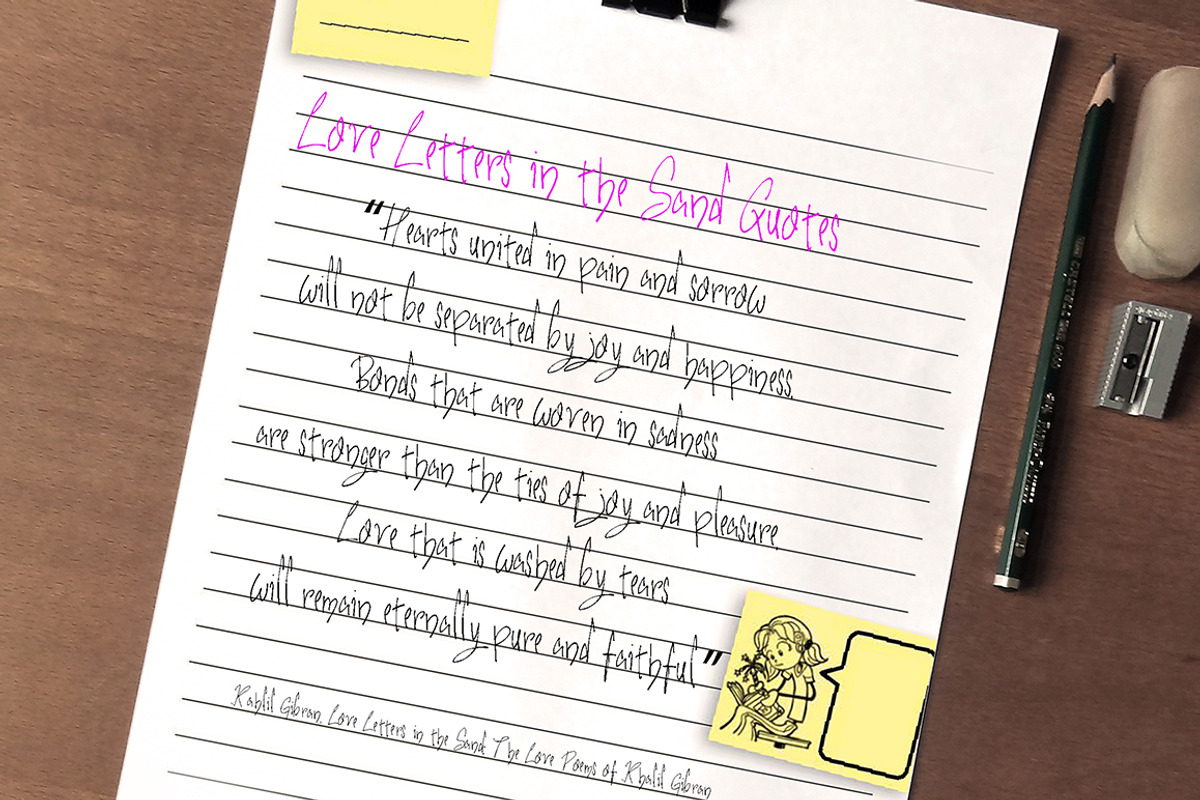 Love Letters in the Sand Quotes
"Hearts united in pain and sorrow
will not be separated by joy and happiness.
Bonds that are woven in sadness
are stronger than the ties of joy and pleasure.
Love that is washed by tears
will remain eternally pure and faithful"
Kahlil Gibran, Love Letters in the Sand: The Love Poems of Khalil Gibran